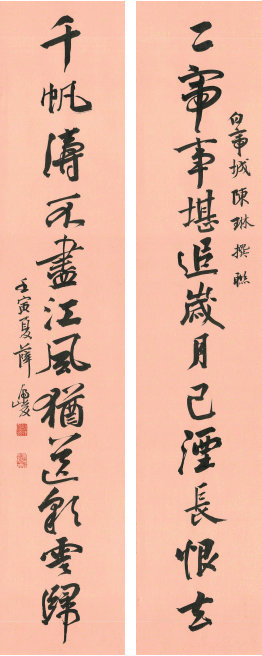 白帝城陳琳撰聯
二帝事堪追歲月已湮長恨去
千帆濤不盡江風猶送彩雲歸
壬寅夏薛